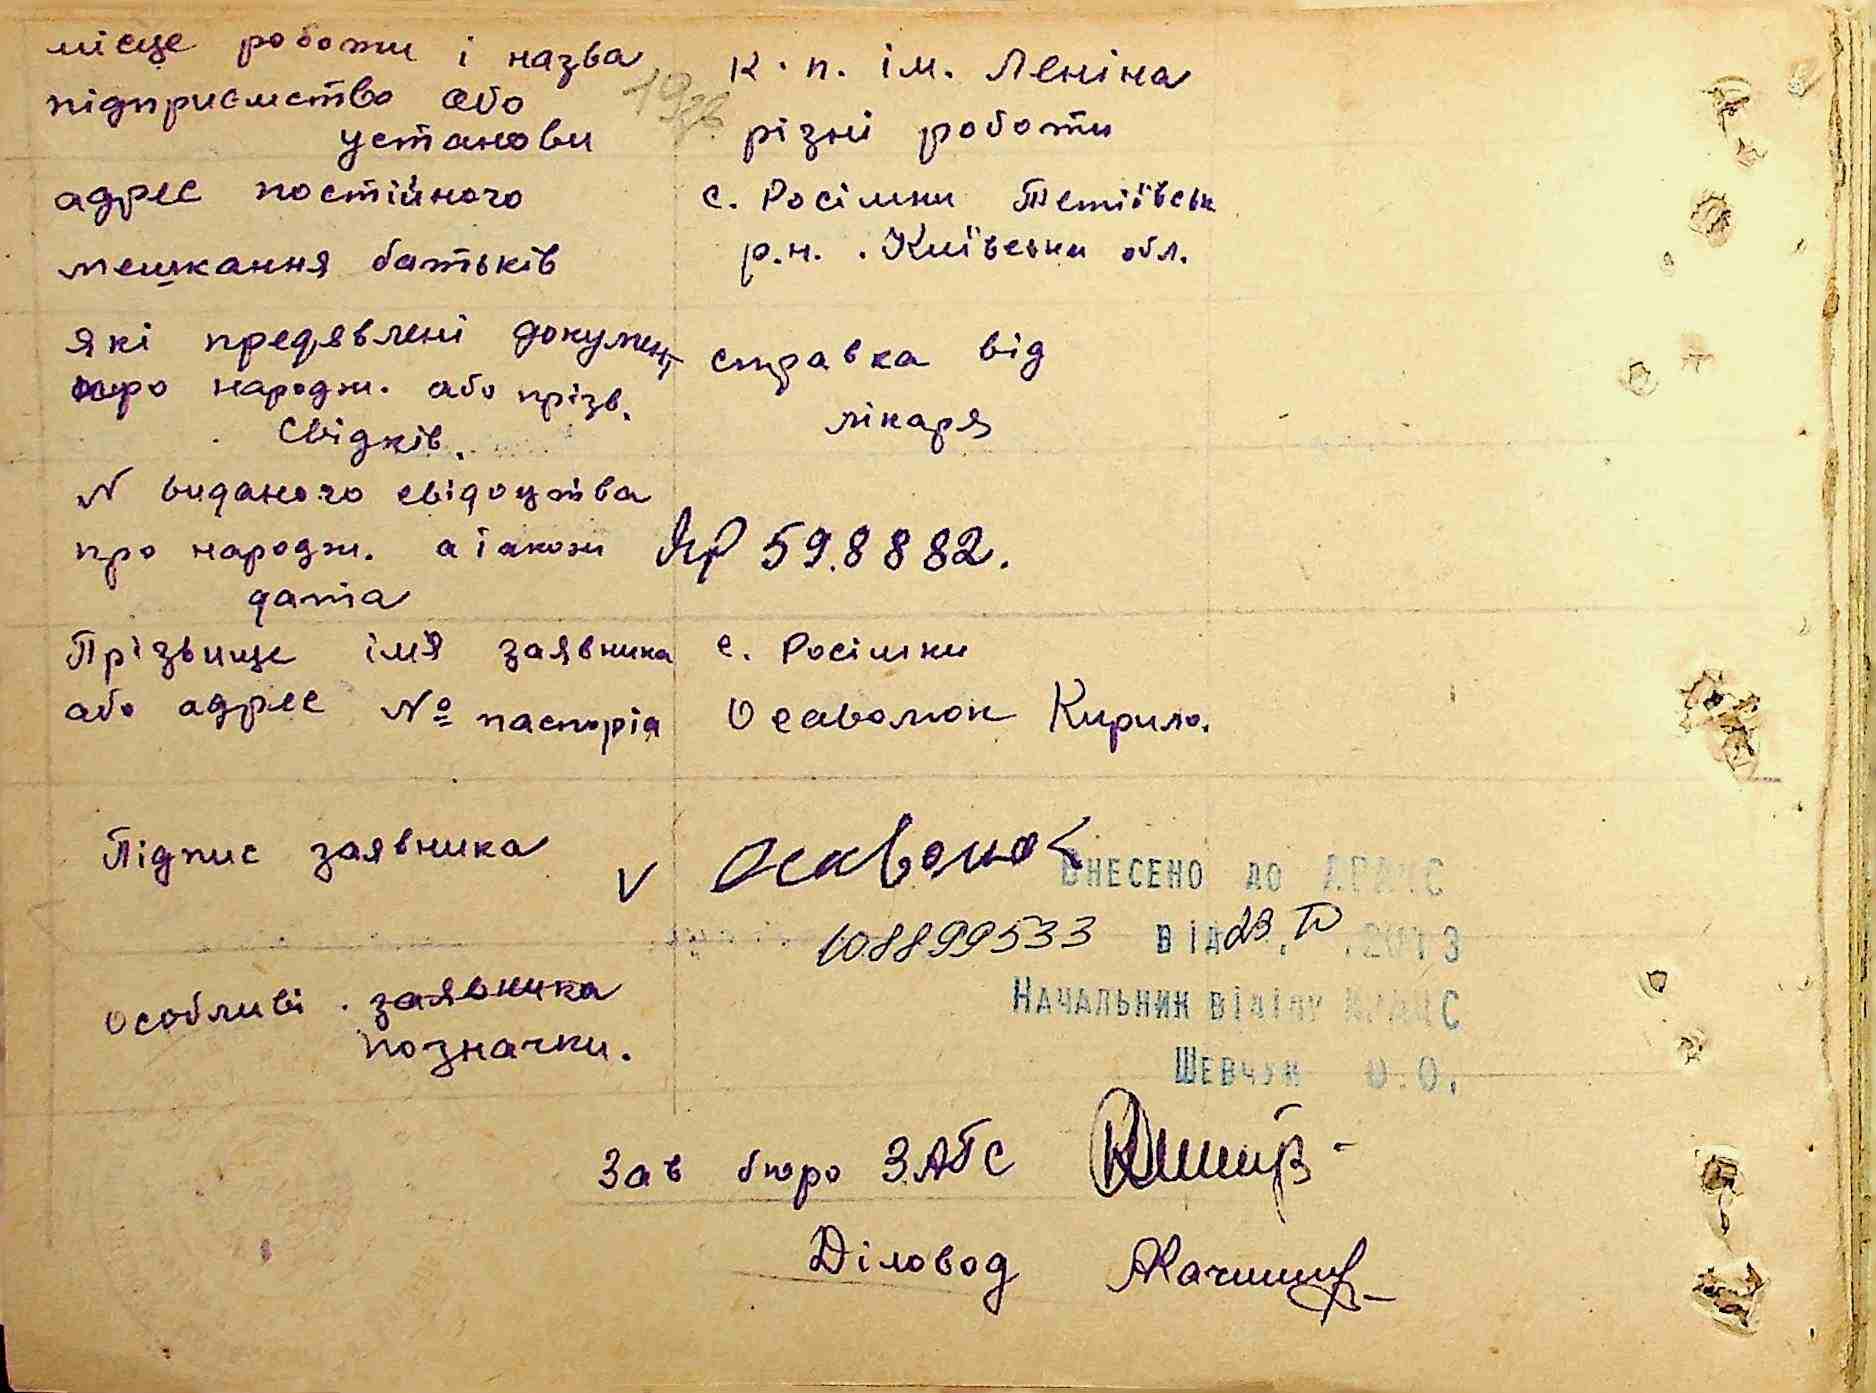 місце роботи і назва
підприємство або
установи
к.п. ім. Леніна
різні роботи
адрес постійного
мешкання батьків
с. Росішки Тетіївськ
р.н. Київськи обл.
які предявлені докумен,
про народж. або прізв.
свідків.
справка від
лікаря
N виданого свідоцтва
про народж. а також
дата
ЯР 59.8882.
Прізвище імя заявника
або адрес № паспорта
с. Росішки
Осаволюк Кирило.
Підпис заявника
V Осаволюк
Внесено до ДРАЦС
108899533 від 23.IV.2013
Начальник відділу ДРАЦС
Шевчук О.О.
особливі . заявника
позначки.
Зав бюро ЗАГС
Діловод